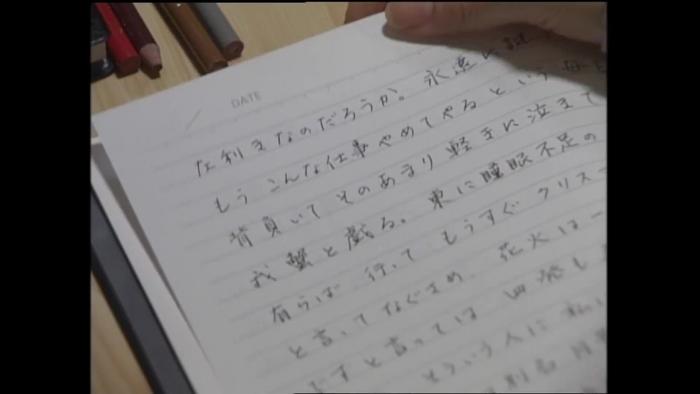 DATE
左利きなのだろうか。永遠に謎
もう こんな仕事やめてやる という母と
背負いて そのあまり軽きに泣きて
我 蟹と戯る。東に睡眠不足の
有らば 行って もうすぐ クリスー
と言ってなぐさめ 花火は一
ですと言っては 四発し
という人に 私